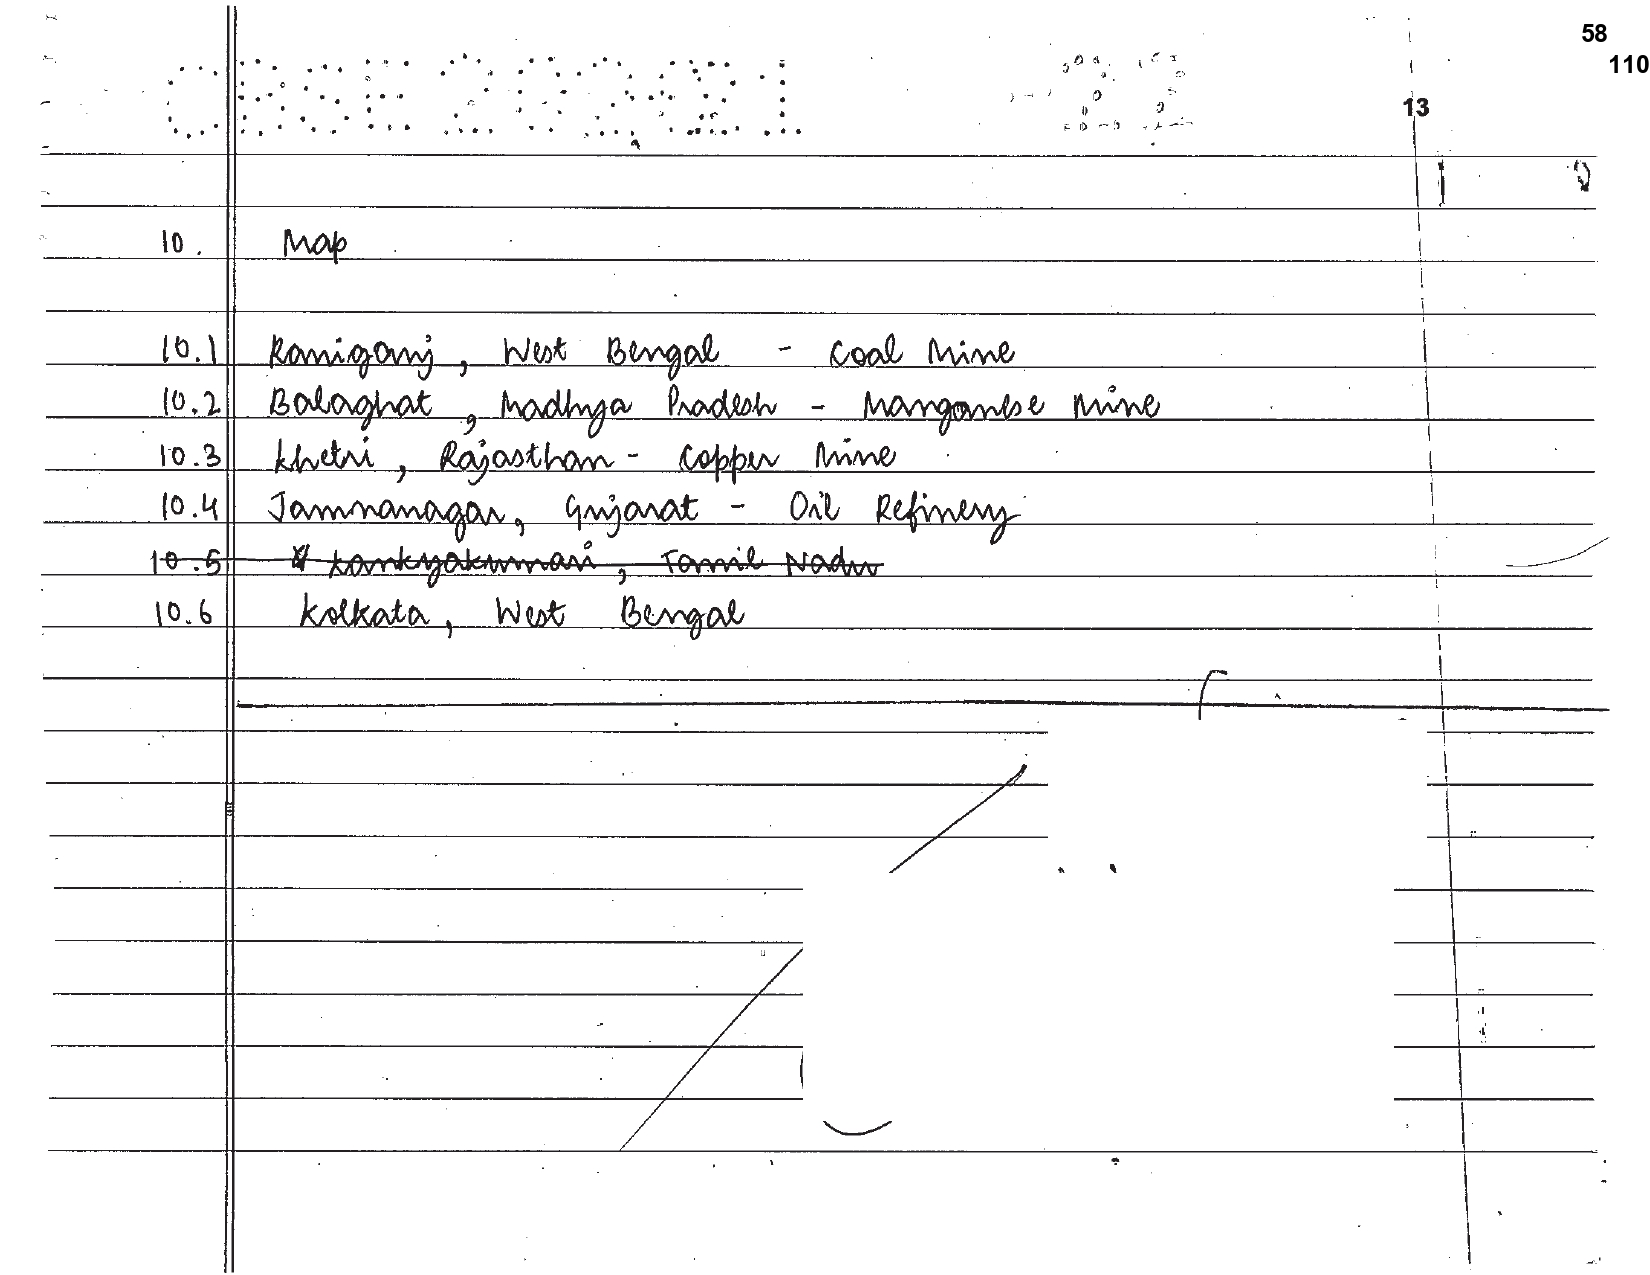 58
110
13
10. Map
10.1 Raniganj, West Bengal - Coal Mine
10.2 Balaghat, Madhya Pradesh - Manganese Mine
10.3 Khetri, Rajasthan - Copper Mine
10.4 Jamnanagar, Gujarat - Oil Refinery
10.5 Kankyakumari, Tamil Nadu
10.6 Kolkata, West Bengal